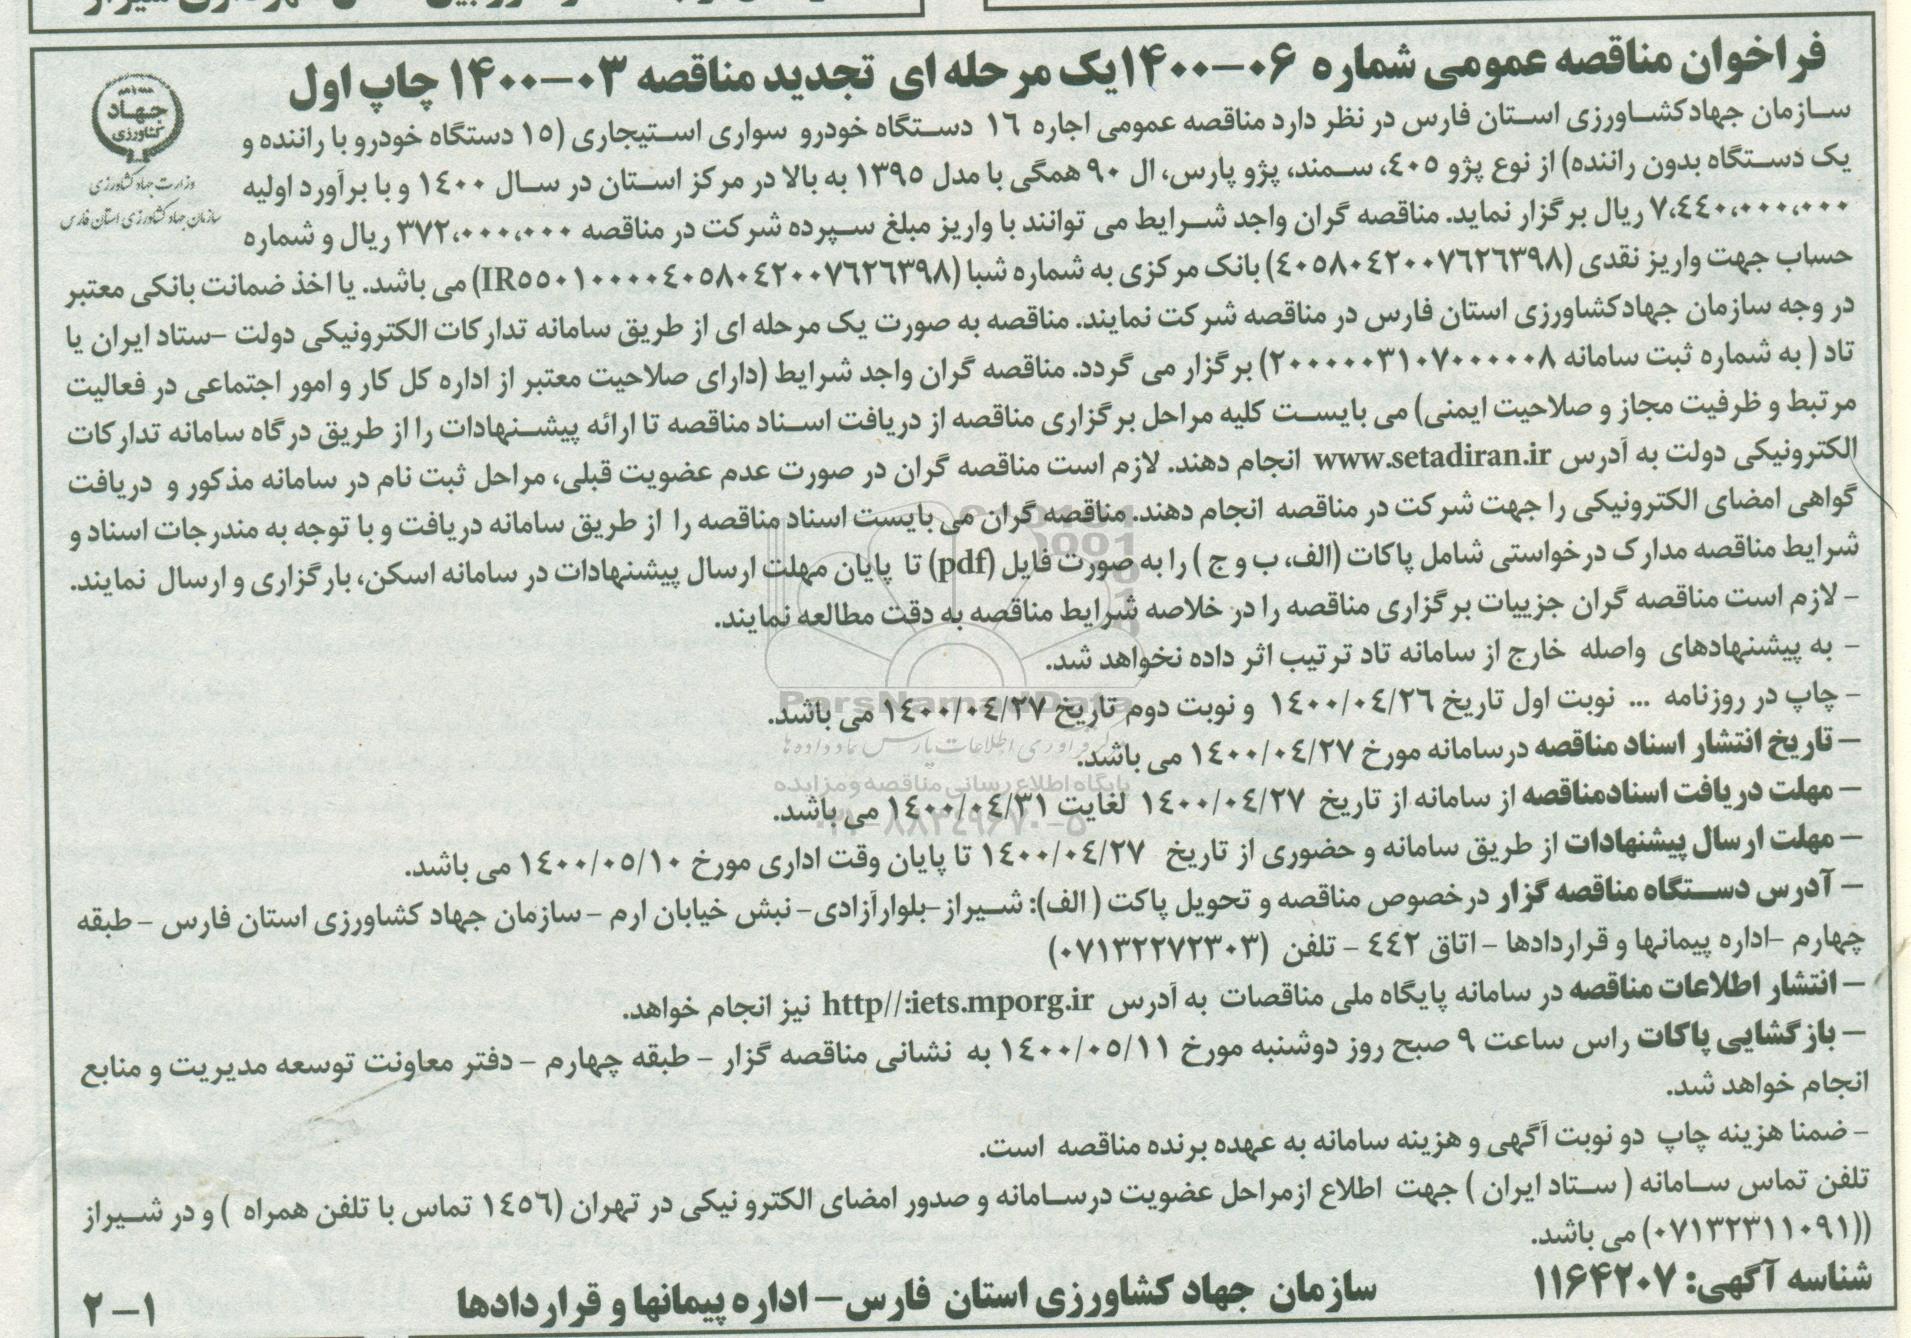 فراخوان مناقصه عمومی شماره ۰۶-۱۴۰۰ یک مرحله ای تجدید مناقصه ۰۳-۱۴۰۰ چاپ اول
جهاد
کشاورزی
وزارت جهاد کشاورزی
سازمان جهاد کشاورزی استان فارس
سازمان جهادکشاورزی استان فارس در نظر دارد مناقصه عمومی اجاره ۱۶ دستگاه خودرو سواری استیجاری (۱۵ دستگاه خودرو با راننده و
یک دستگاه بدون راننده) از نوع پژو ۴۰۵، سمند، پژو پارس، ال ۹۰ همگی با مدل ۱۳۹۵ به بالا در مرکز استان در سال ۱۴۰۰ و با برآورد اولیه
۷،۴۴۰،۰۰۰،۰۰۰ ریال برگزار نماید. مناقصه گران واجد شرایط می توانند با واریز مبلغ سپرده شرکت در مناقصه ۳۷۲،۰۰۰،۰۰۰ ریال و شماره
حساب جهت واریز نقدی (۴۰۵۸۰۴۲۰۰۷۶۲۶۳۹۸) بانک مرکزی به شماره شبا (IR۵۵۰۱۰۰۰۰۴۰۵۸۰۴۲۰۰۷۶۲۶۳۹۸) می باشد. یا اخذ ضمانت بانکی معتبر
در وجه سازمان جهادکشاورزی استان فارس در مناقصه شرکت نمایند. مناقصه به صورت یک مرحله ای از طریق سامانه تدارکات الکترونیکی دولت -ستاد ایران یا
تاد ( به شماره ثبت سامانه ۲۰۰۰۰۰۳۱۰۷۰۰۰۰۰۸) برگزار می گردد. مناقصه گران واجد شرایط (دارای صلاحیت معتبر از اداره کل کار و امور اجتماعی در فعالیت
مرتبط و ظرفیت مجاز و صلاحیت ایمنی) می بایست کلیه مراحل برگزاری مناقصه از دریافت اسناد مناقصه تا ارائه پیشنهادات را از طریق درگاه سامانه تدارکات
الکترونیکی دولت به آدرس www.setadiran.ir انجام دهند. لازم است مناقصه گران در صورت عدم عضویت قبلی، مراحل ثبت نام در سامانه مذکور و دریافت
گواهی امضای الکترونیکی را جهت شرکت در مناقصه انجام دهند. مناقصه گران می بایست اسناد مناقصه را از طریق سامانه دریافت و با توجه به مندرجات اسناد و
شرایط مناقصه مدارک درخواستی شامل پاکات (الف، ب و ج ) را به صورت فایل (pdf) تا پایان مهلت ارسال پیشنهادات در سامانه اسکن، بارگزاری و ارسال نمایند.
- لازم است مناقصه گران جزییات برگزاری مناقصه را در خلاصه شرایط مناقصه به دقت مطالعه نمایند.
- به پیشنهادهای واصله خارج از سامانه تاد ترتیب اثر داده نخواهد شد.
- چاپ در روزنامه ... نوبت اول تاریخ ۱۴۰۰/۰۴/۲۶ و نوبت دوم تاریخ ۱۴۰۰/۰۴/۲۷ می باشد.
- تاریخ انتشار اسناد مناقصه درسامانه مورخ ۱۴۰۰/۰۴/۲۷ می باشد.
- مهلت دریافت اسنادمناقصه از سامانه از تاریخ ۱۴۰۰/۰۴/۲۷ لغایت ۱۴۰۰/۰۴/۳۱ می باشد.
- مهلت ارسال پیشنهادات از طریق سامانه و حضوری از تاریخ ۱۴۰۰/۰۴/۲۷ تا پایان وقت اداری مورخ ۱۴۰۰/۰۵/۱۰ می باشد.
- آدرس دستگاه مناقصه گزار درخصوص مناقصه و تحویل پاکت ( الف): شیراز-بلوارآزادی- نبش خیابان ارم - سازمان جهاد کشاورزی استان فارس - طبقه
چهارم -اداره پیمانها و قراردادها - اتاق ۴۴۲ - تلفن (۰۷۱۳۲۲۷۲۳۰۳)
- انتشار اطلاعات مناقصه در سامانه پایگاه ملی مناقصات به آدرس http//:iets.mporg.ir نیز انجام خواهد.
- بازگشایی پاکات راس ساعت ۹ صبح روز دوشنبه مورخ ۱۴۰۰/۰۵/۱۱ به نشانی مناقصه گزار - طبقه چهارم - دفتر معاونت توسعه مدیریت و منابع
انجام خواهد شد.
- ضمنا هزینه چاپ دو نوبت آگهی و هزینه سامانه به عهده برنده مناقصه است.
تلفن تماس سامانه ( ستاد ایران ) جهت اطلاع ازمراحل عضویت درسامانه و صدور امضای الکترونیکی در تهران (۱۴۵۶ تماس با تلفن همراه ) و در شیراز
((۰۷۱۳۲۳۱۱۰۹۱) می باشد.
شناسه آگهی: ۱۱۶۴۲۰۷
سازمان جهاد کشاورزی استان فارس- اداره پیمانها و قراردادها
۱- ۲
ParsNamadData
پایگاه اطلاع رسانی مناقصه و مزایده
۰۲۱-۸۸۳۴۹۶۷۰-۵